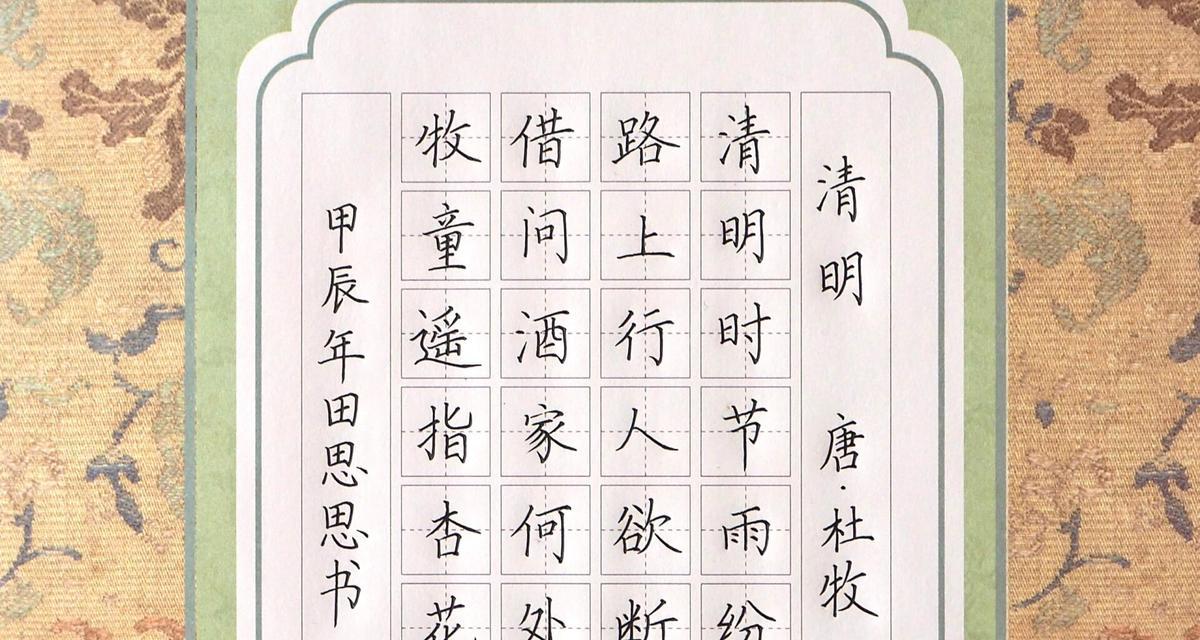 清明 唐·杜牧
清明时节雨纷
路上行人欲断
借问酒家何处
牧童遥指杏花
甲辰年田思思书